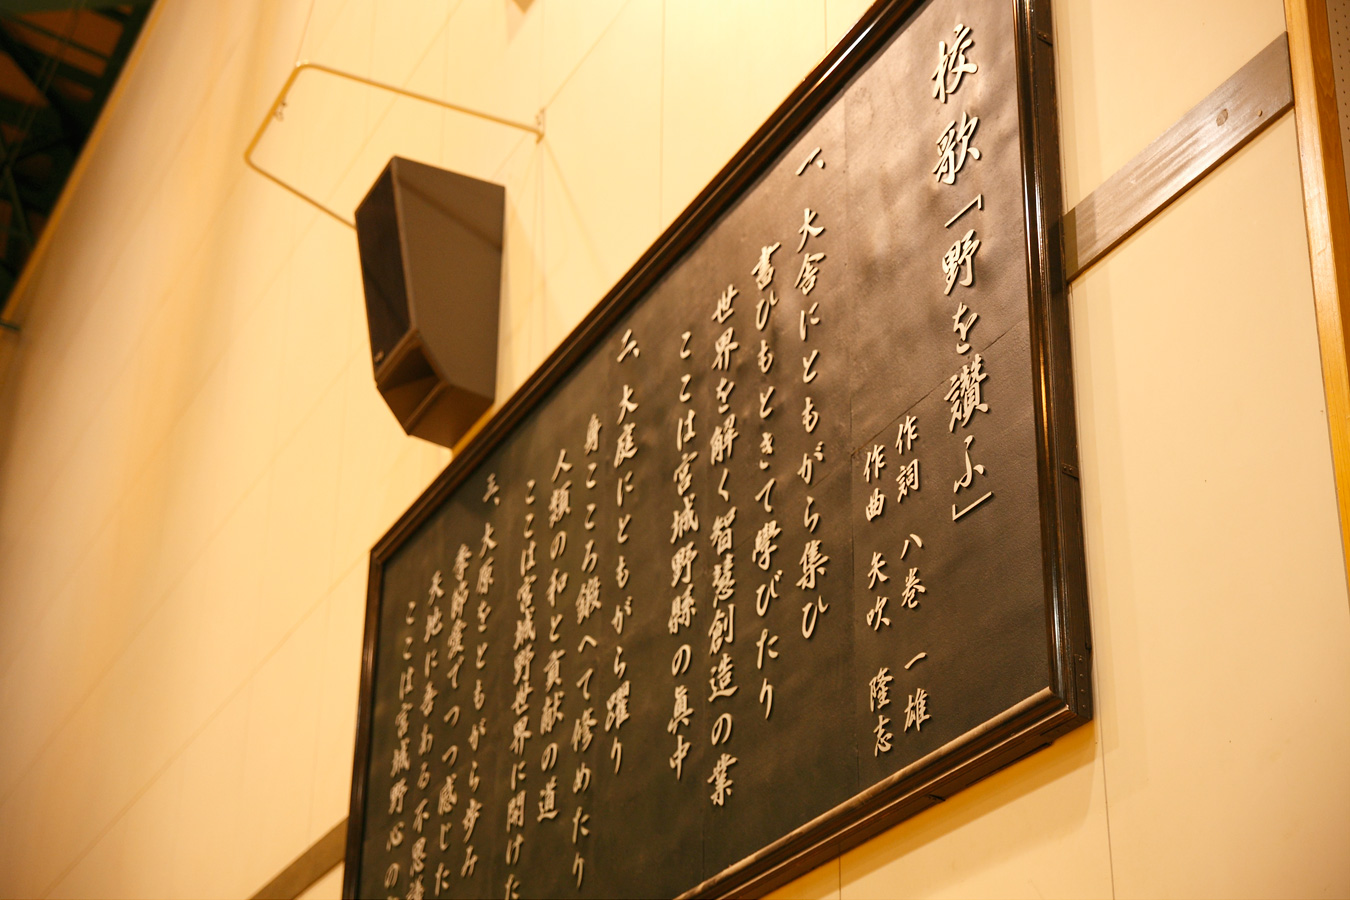 校歌「野を讃ふ」
作詞 八巻 一雄
作曲 矢吹 隆志
一、大舎にともがら集ひ
書ひもときて學びたり
世界を解く智慧創造の業
ここは宮城野縣の眞中
二、大庭にともがら躍り
身こころ鍛へて修めたり
人類の和と貢献の道
ここは宮城野世界に開けた
三、大原をともがら歩み
季節愛でつつ感じた
天地に音ある不思議
ここは宮城野心の